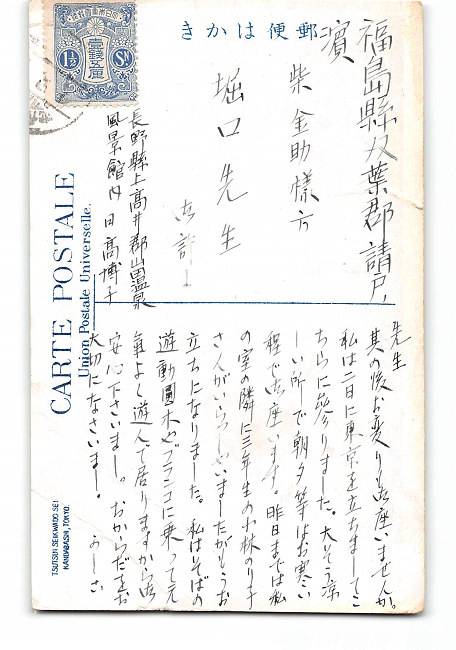 郵便はかき
大日本帝國郵便
壹錢五厘
1½ Sn
CARTE POSTALE
Union Postale Universelle.
福島縣双葉郡請戸
濱
柴金助様方
堀口先生
御許に
長野縣上高井郡山田温泉
風景館内 日高博子
先生
其の後お変りも御座いませんか。
私は二日に東京を立ちましてこ
ちらに参りました。大そう涼
しい所で朝夕等はお寒い
程で御座います。昨日までは私
の室の隣に三年生の小林のり子
さんがいらっしいましたがもうお
立ちになりました。私はそばの
遊動圓木やブランコに乗って元
氣よく遊んで居りますから御
安心下さいまし。おからだをお
大切になさいまし。
TSUTSUI SEIKWADO SEI
KANDABASHI, TOKYO.